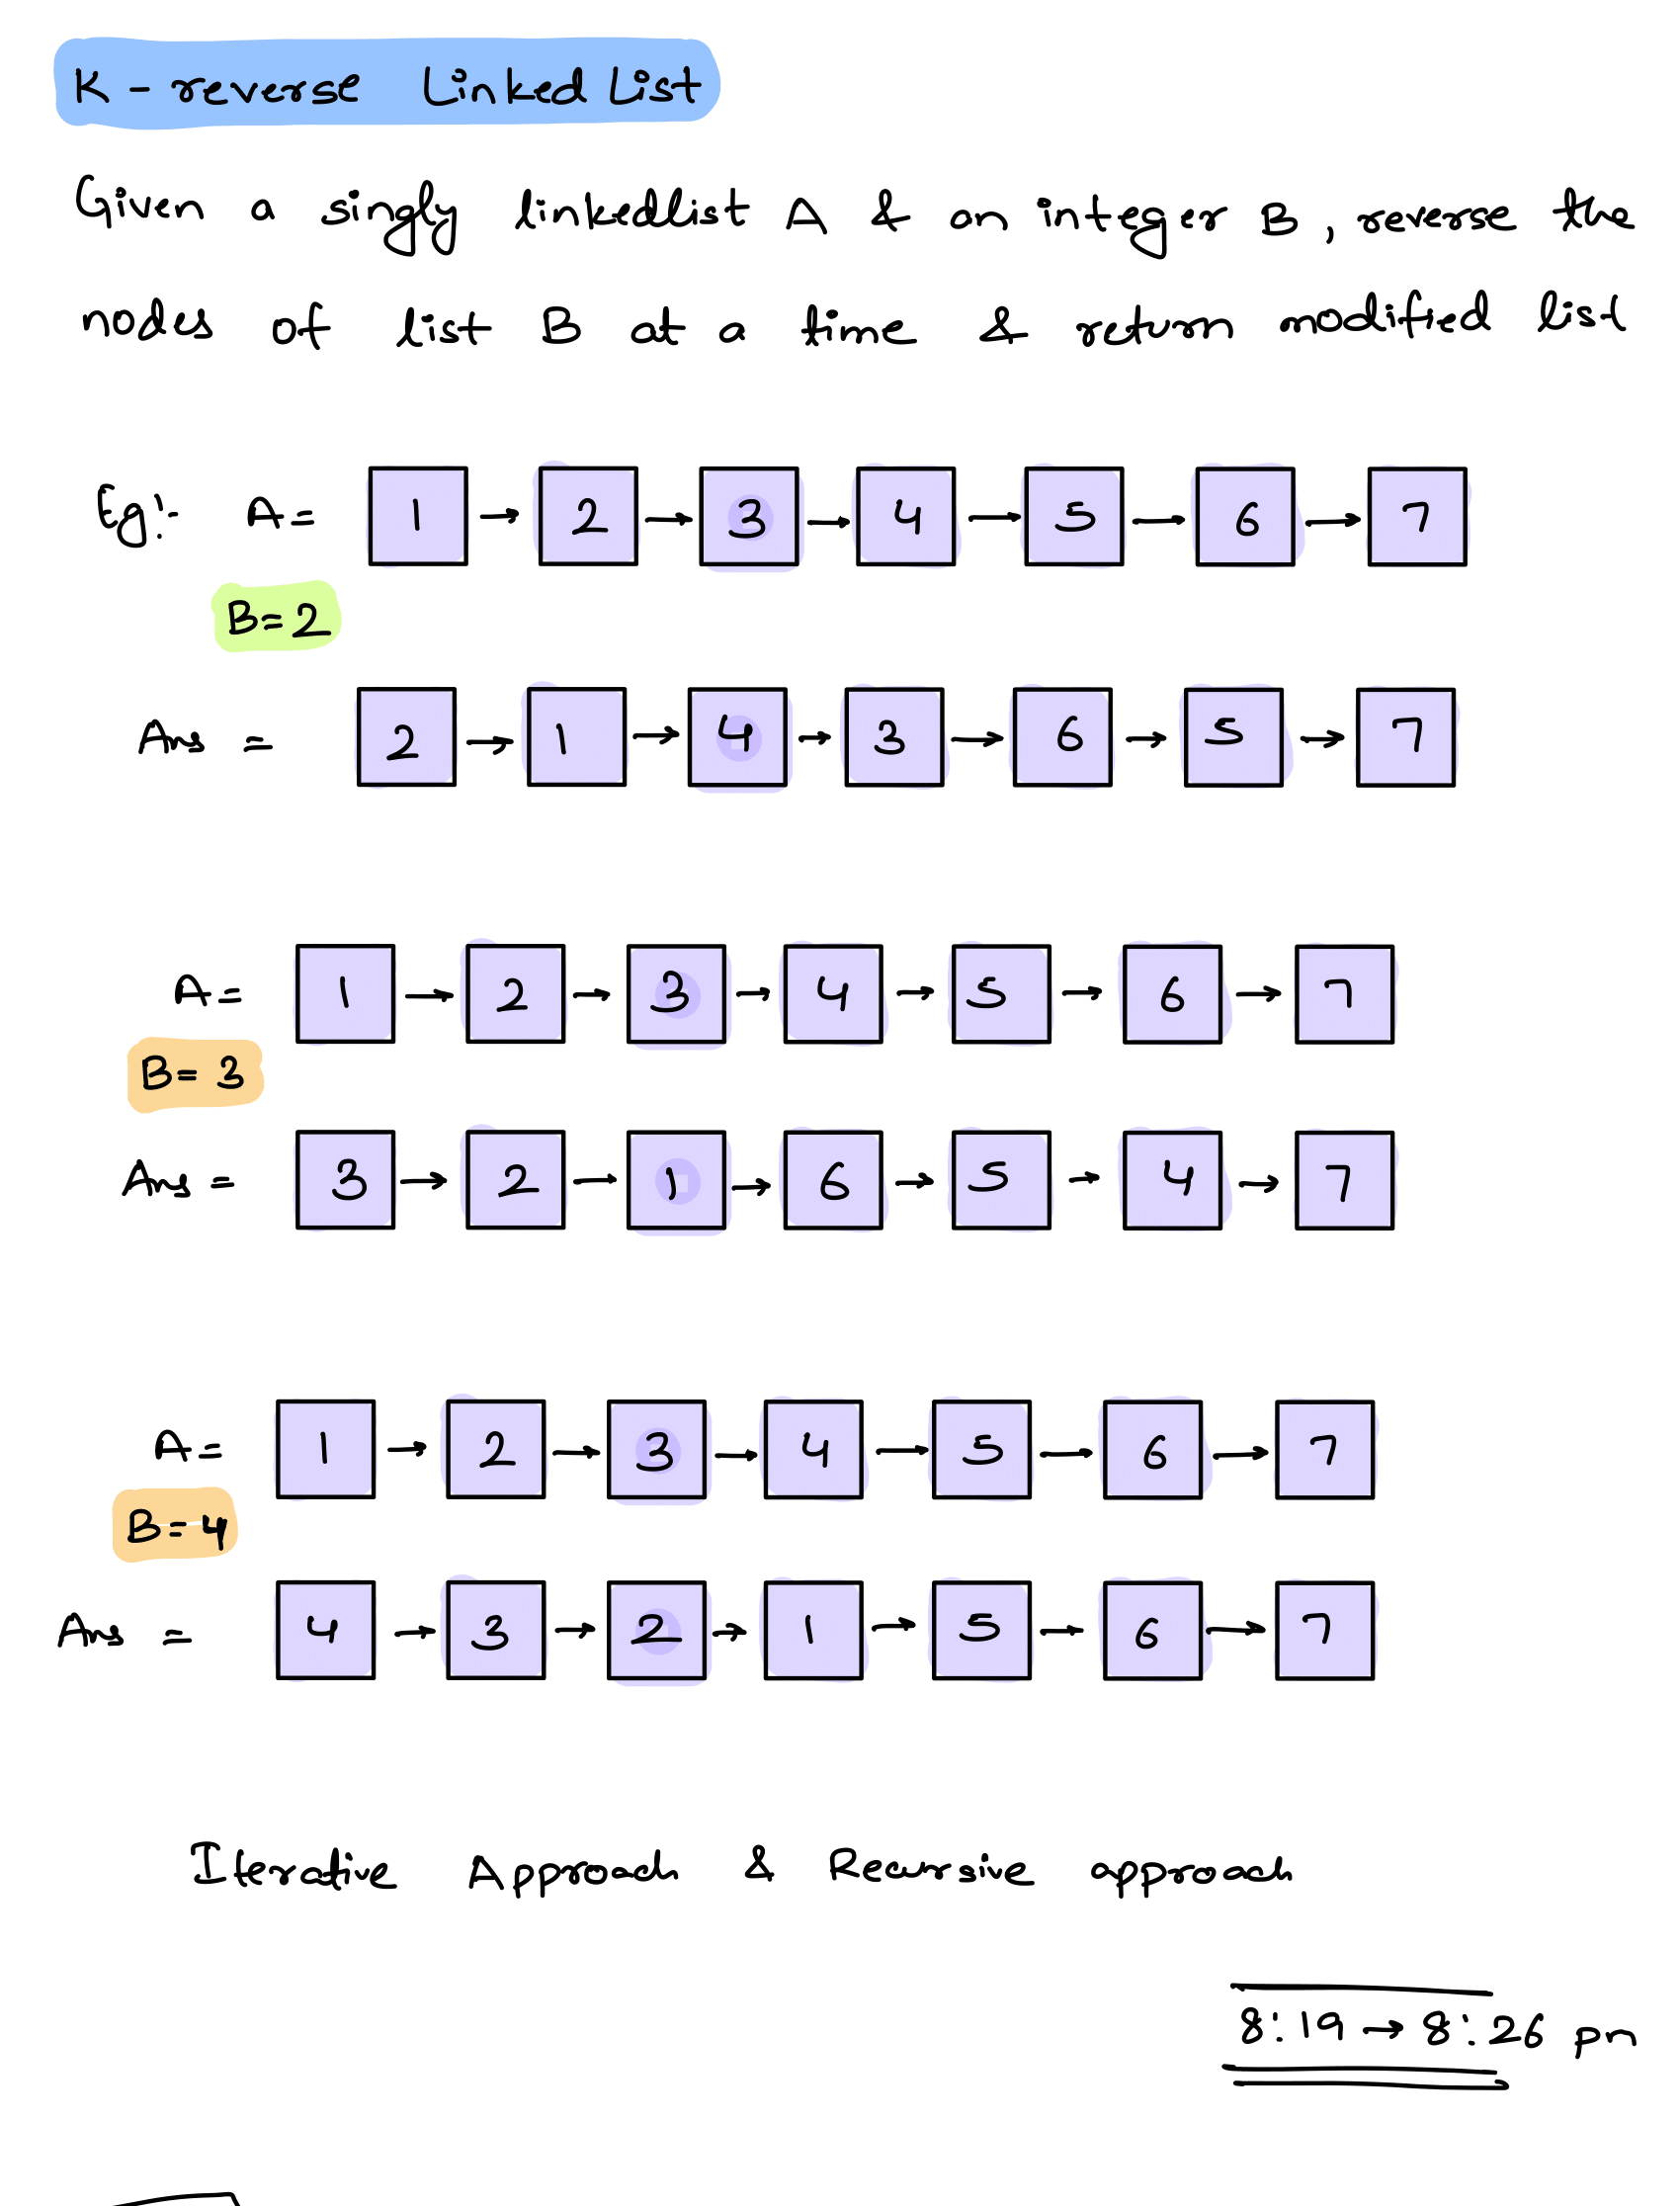 K - reverse Linked List
Given a singly linkedlist A & an integer B, reverse the
nodes of list B at a time & return modified list
Eg:- A = 1 → 2 → 3 → 4 → 5 → 6 → 7
B = 2
Ans = 2 → 1 → 4 → 3 → 6 → 5 → 7
A = 1 → 2 → 3 → 4 → 5 → 6 → 7
B = 3
Ans = 3 → 2 → 1 → 6 → 5 → 4 → 7
A = 1 → 2 → 3 → 4 → 5 → 6 → 7
B = 4
Ans = 4 → 3 → 2 → 1 → 5 → 6 → 7
Iterative Approach & Recursive approach
8:19 → 8:26 pm